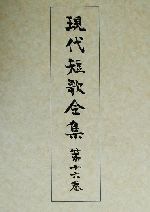 現代短歌全集
第十六巻